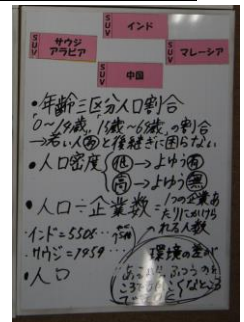 SUV
インド
SUV
サウジ
アラビア
SUV
マレーシア
SUV
中国
・年齢三区分人口割合
"0〜14歳" "15歳〜64歳"の割合
→若い人多と後継ぎに困らない
・人口密度 低→よゆう有
高→よゆう無
・人口÷企業数=1つの企業あ
たりにかけら
れる人数
インド=5505
サウジ=7959
・人口
環境の差が